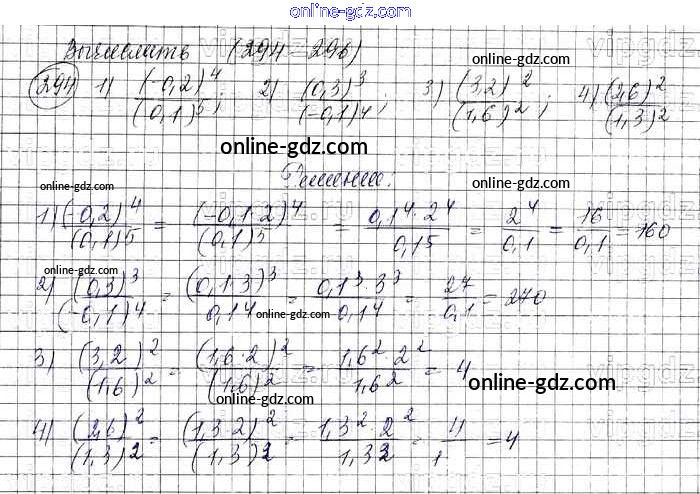 online-gdz.com
Вычислить (294–296)
294 1) (-0,2)^4/(0,1)^5; 2) (0,3)^3/(-0,1)^4; 3) (3,2)^2/(1,6)^2; 4) (2,6)^2/(1,3)^2
online-gdz.com
online-gdz.com
Решение.
online-gdz.com online-gdz.com
1) (-0,2)^4/(0,1)^5 = (-0,1·2)^4/(0,1)^5 = 0,1^4·2^4/0,1^5 = 2^4/0,1 = 16/0,1 = 160
online-gdz.com
2) (0,3)^3/(-0,1)^4 = (0,1·3)^3/0,1^4 = 0,1^3·3^3/0,1^4 = 27/0,1 = 270
online-gdz.com
3) (3,2)^2/(1,6)^2 = (1,6·2)^2/(1,6)^2 = 1,6^2·2^2/1,6^2 = 4
online-gdz.com
online-gdz.com
4) (2,6)^2/(1,3)^2 = (1,3·2)^2/(1,3)^2 = 1,3^2·2^2/1,3^2 = 4/1 = 4
online-gdz.com